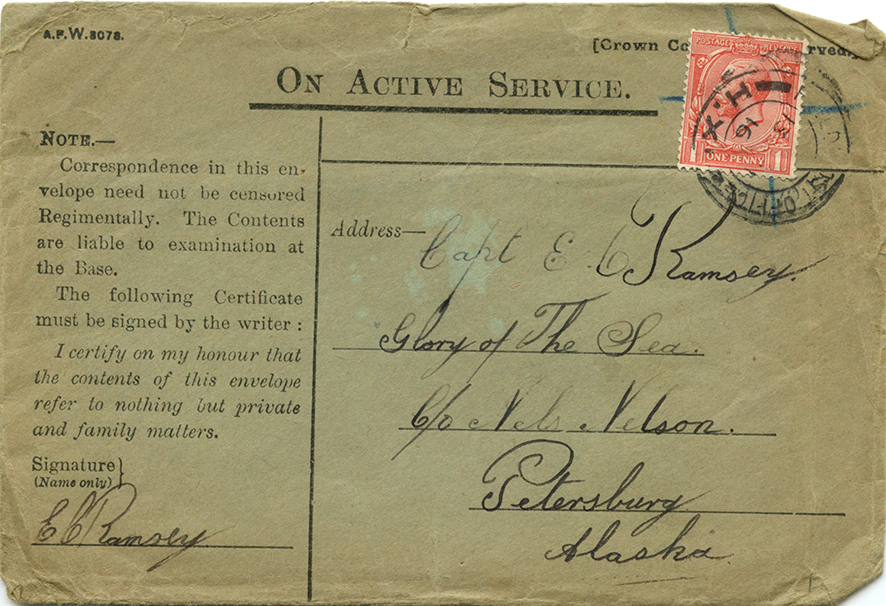 A.F.W.3078.
[Crown Co rved.]
ON ACTIVE SERVICE.
POSTAGE REVENUE
ONE PENNY
1 1
NOTE.—
Correspondence in this en-
velope need not be censored
Regimentally. The Contents
are liable to examination at
the Base.
The following Certificate
must be signed by the writer :
I certify on my honour that
the contents of this envelope
refer to nothing but private
and family matters.
Signature }
(Name only)
E C Ramsey
Address—
Capt E. C Ramsey.
Glory of The Sea.
C/o Nels Nelson.
Petersburg
Alaska